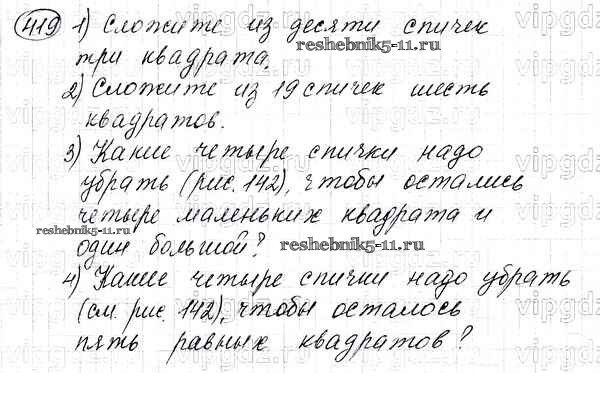 419 1) Сложите из десяти спичек
reshebnik5-11.ru
три квадрата.
2) Сложите из 19 спичек шесть
квадратов.
3) Какие четыре спички надо
убрать (рис. 142), чтобы остались
четыре маленьких квадрата и
reshebnik5-11.ru
один большой?
reshebnik5-11.ru
4) Какие четыре спички надо убрать
(см. рис. 142), чтобы осталось
пять равных квадратов?